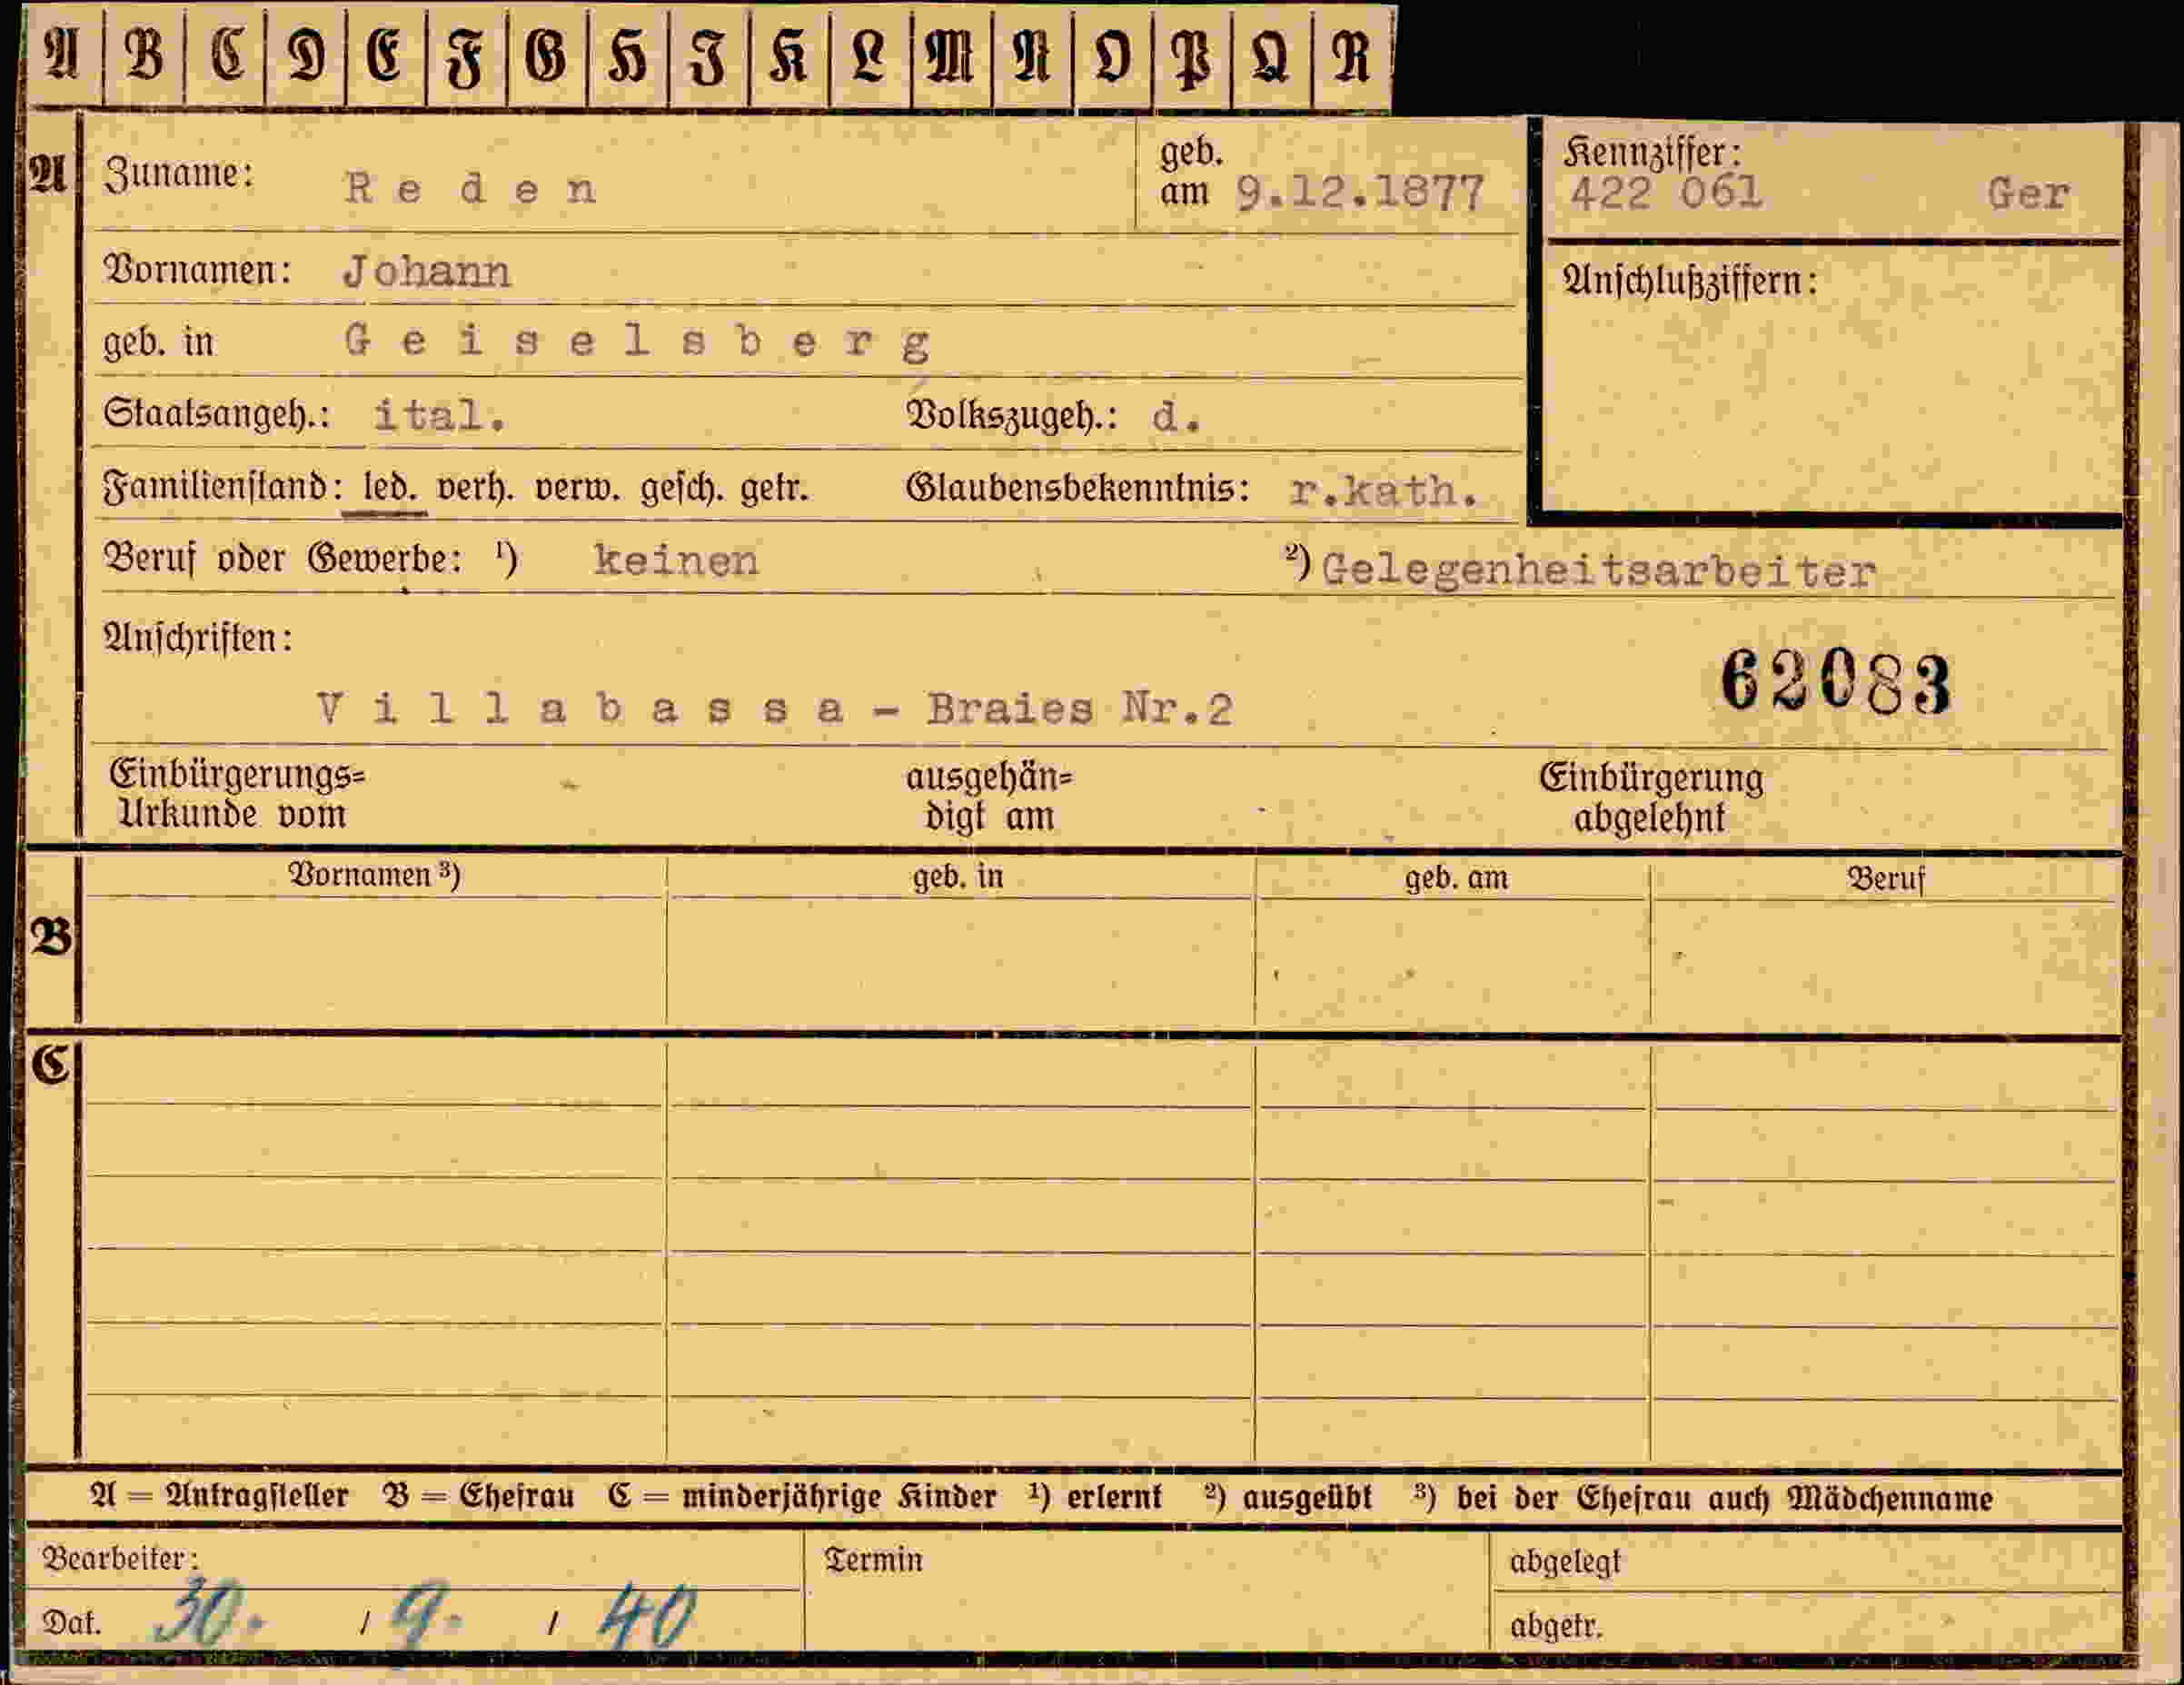 A B C D E F G H I K L M N O P Q R
A Zuname: Reden geb. am 9.12.1877
Kennziffer: 422 061 Ger
Vornamen: Johann
Anschlußziffern:
geb. in Geiselsberg
Staatsangeh.: ital. Volkszugeh.: d.
Familienstand: led. verh. verw. gesch. getr. Glaubensbekenntnis: r.kath.
Beruf oder Gewerbe: ¹) keinen ²) Gelegenheitsarbeiter
Anschriften:
62083
Villabassa - Braies Nr.2
Einbürgerungs= ausgehän= Einbürgerung
Urkunde vom digt am abgelehnt
Vornamen ³) geb. in geb. am Beruf
B
C
A = Antragsteller B = Ehefrau C = minderjährige Kinder ¹) erlernt ²) ausgeübt ³) bei der Ehefrau auch Mädchenname
Bearbeiter: Termin abgelegt
Dat. 30. / 9. / 40 abgetr.